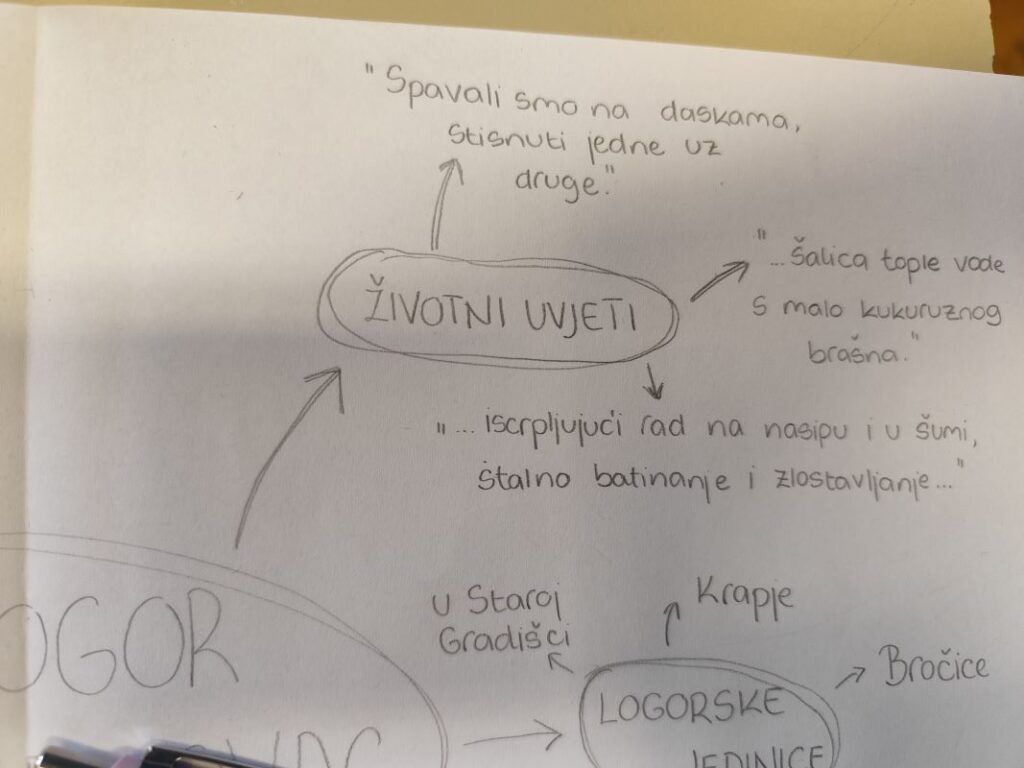 "Spavali smo na daskama,
stisnuti jedne uz
druge."
ŽIVOTNI UVJETI
"...šalica tople vode
s malo kukuruznog
brašna."
"... iscrpljujući rad na nasipu i u šumi,
štalno batinanje i zlostavljanje..."
U Staroj
Gradišci
Krapje
Bročice
LOGORSKE
JEDINICE